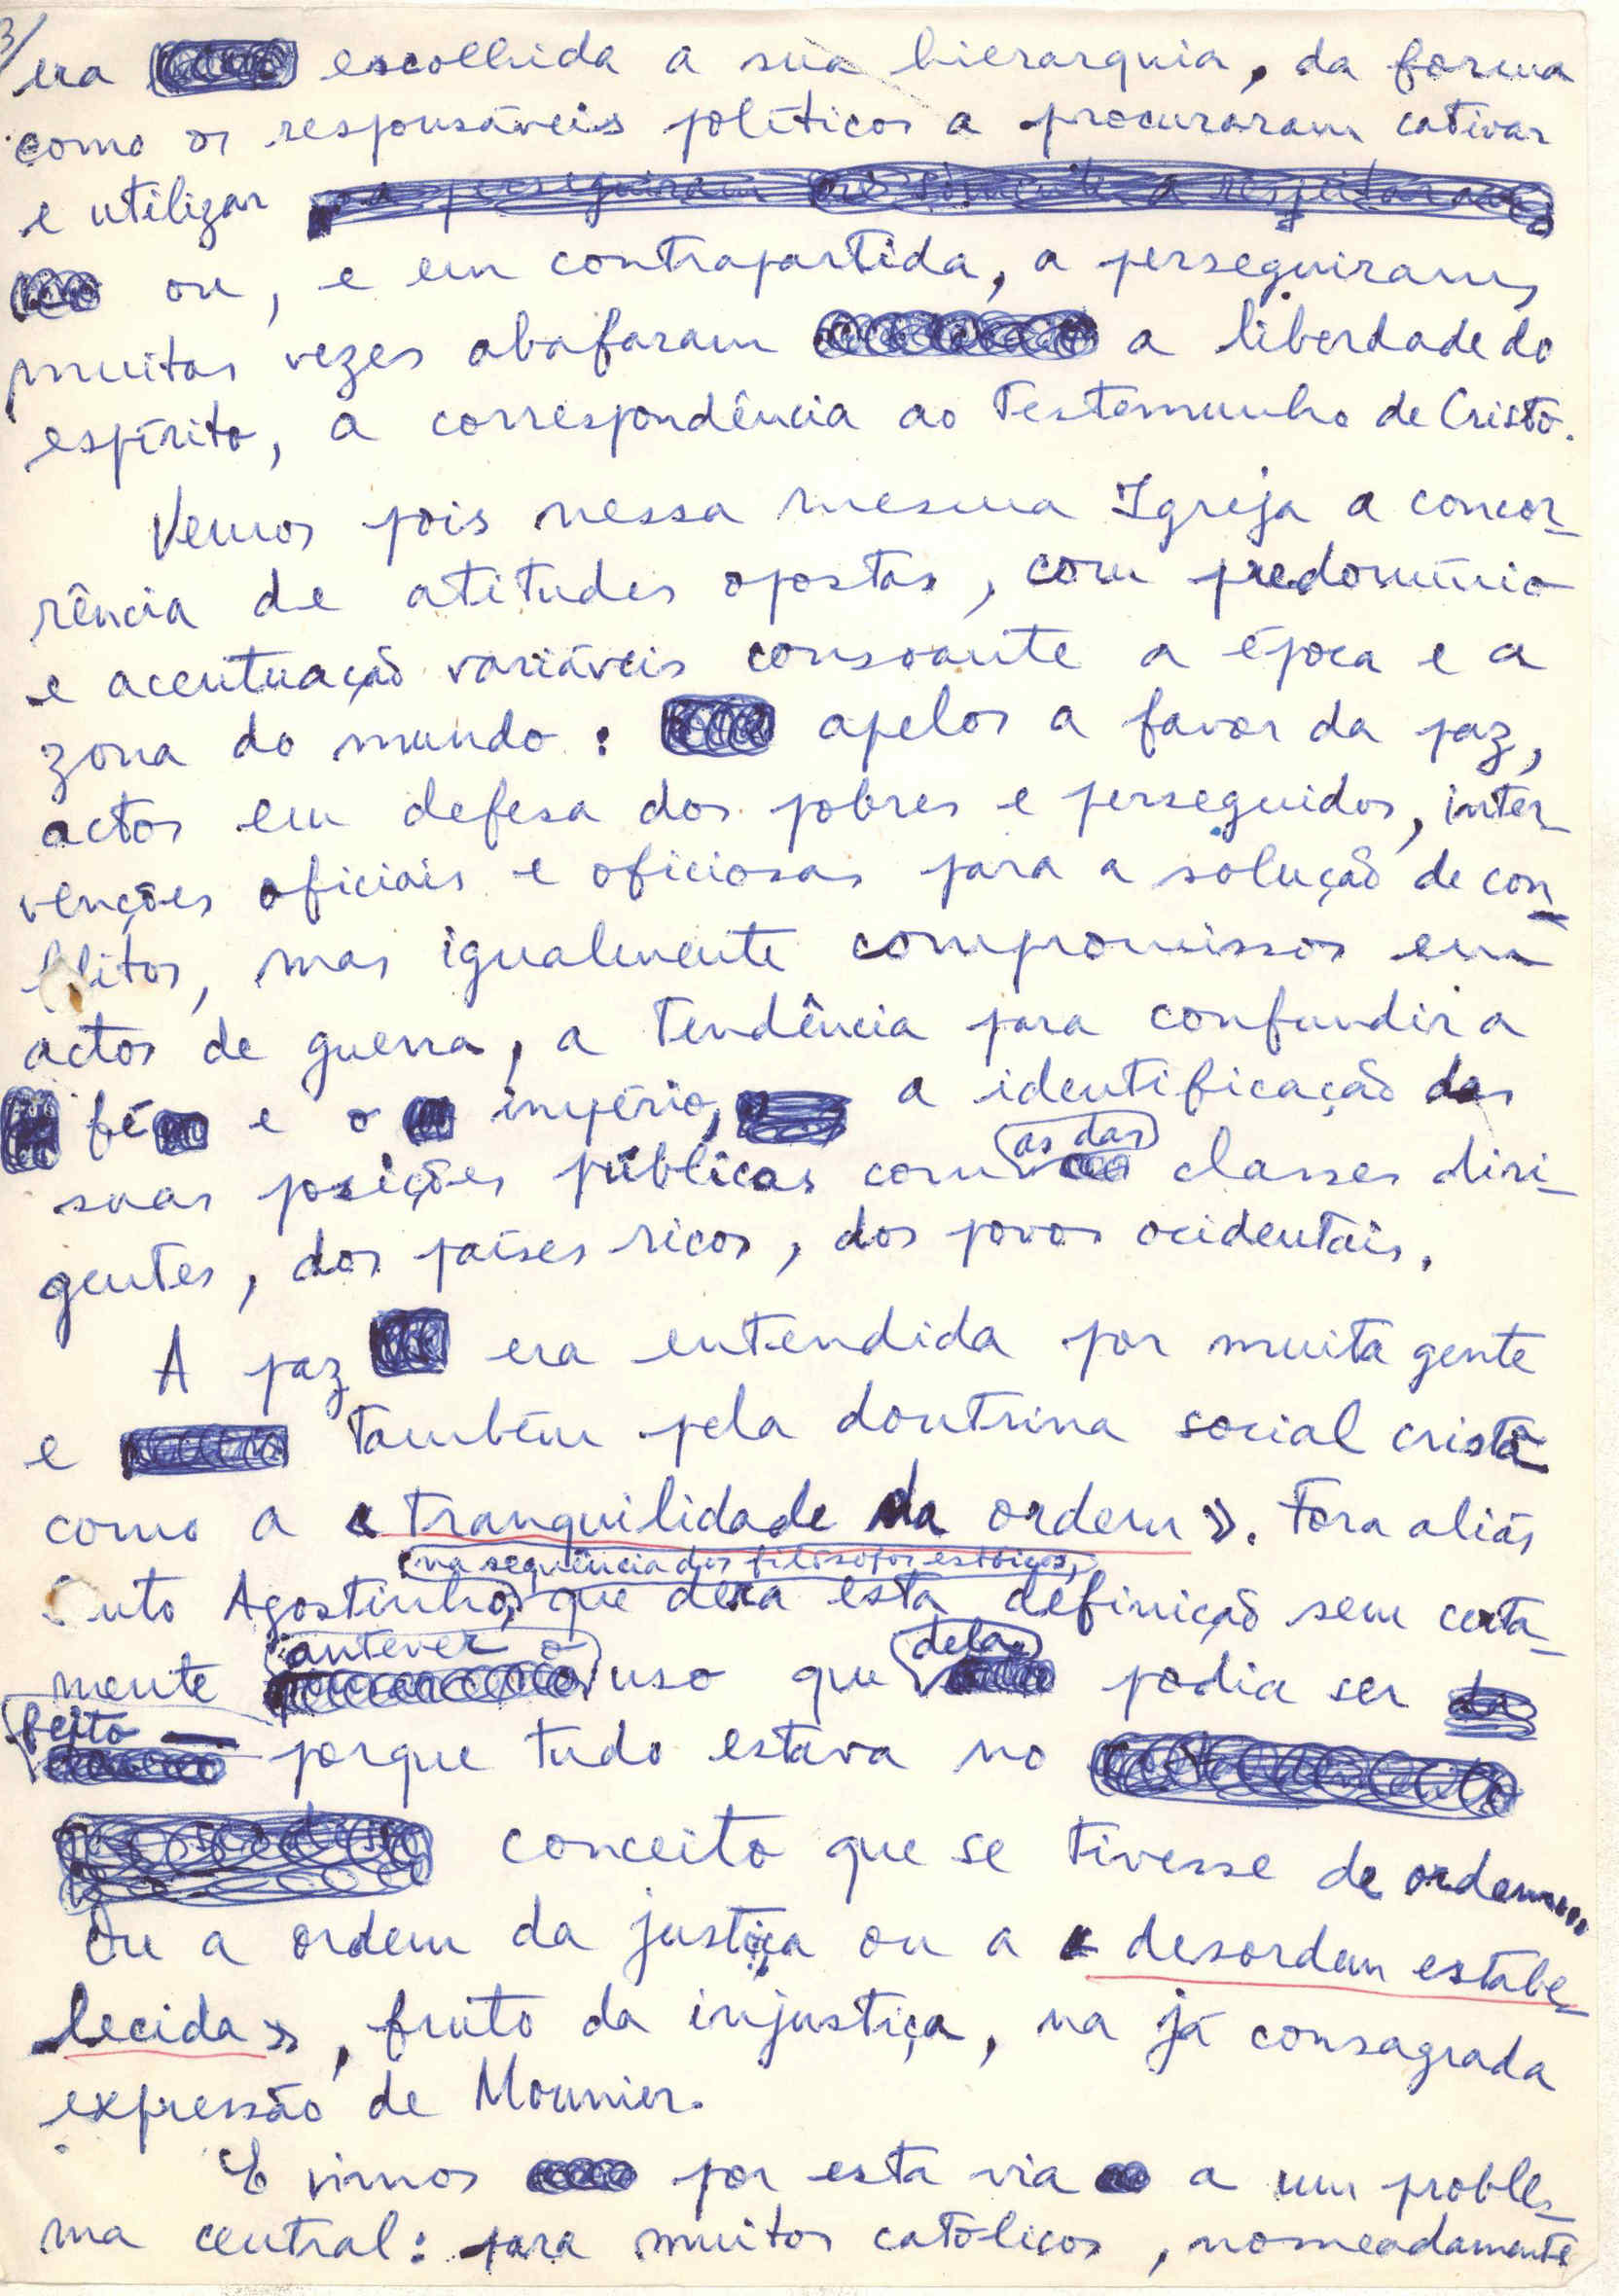 3/
era escolhida a sua hierarquia, da forma
como os responsáveis políticos a procuraram cativar
e utilizar
ou, e em contrapartida, a perseguiram,
muitas vezes abafaram a liberdade do
espírito, a correspondência ao Testemunho de Cristo.
Vemos pois nessa mesma Igreja a concor-
rência de atitudes opostas, com predomínio
e acentuação variáveis consoante a época e a
zona do mundo: apelos a favor da paz,
actos em defesa dos pobres e perseguidos, inter-
venções oficiais e oficiosas para a solução de con-
flitos, mas igualmente compromissos em
actos de guerra, a tendência para confundir a
fé e o império, a identificação das
suas posições públicas com as das classes diri-
gentes, dos países ricos, dos povos ocidentais.
A paz era entendida por muita gente
e também pela doutrina social cristã
como a «tranquilidade da ordem». Fora aliás
Santo Agostinho, na sequência dos filósofos estóicos, que dera esta definição sem certa-
mente antever o uso que dela podia ser
feito — porque tudo estava no
conceito que se tivesse de ordem...
Ou a ordem da justiça ou a «desordem estabe-
lecida», fruto da injustiça, na já consagrada
expressão de Mounier.
E vimos por esta via a um proble-
ma central: para muitos católicos, nomeadamente